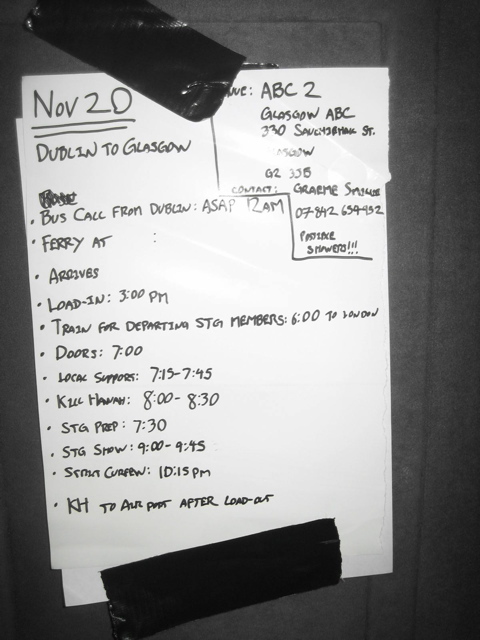 Nov 20
DUBLIN TO GLASGOW
UE: ABC 2
GLASGOW ABC
330 ST.
SGOW
G2 3JB
CONTACT: GRAEME
07842
POSSIBLE
SHOWERS!!!
• BUS CALL FROM DUBLIN: ASAP 12AM
• FERRY AT :
• ARRIVES
• LOAD-IN: 3:00 PM
• TRAIN FOR DEPARTING STG MEMBERS: 6:00 TO LONDON
• DOORS: 7:00
• LOCAL SUPPORT: 7:15-7:45
• KILL HANNAH: 8:00-8:30
• STG PREP: 7:30
• STG SHOW: 9:00-9:45
• STRICT CURFEW: 10:15 PM
• KH TO AIRPORT AFTER LOAD-OUT